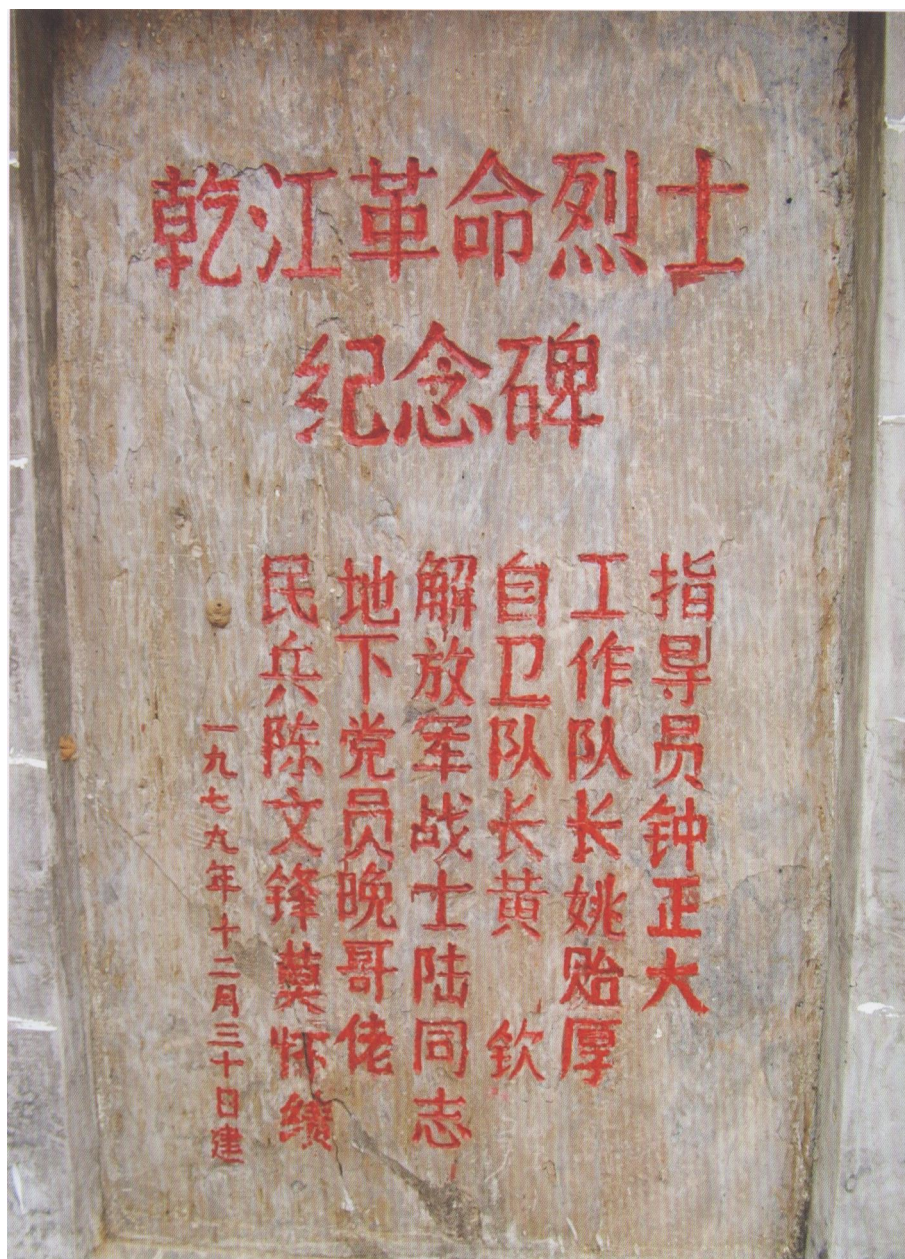 乾江革命烈士
纪念碑
指导员钟正大
工作队长姚贻厚
自卫队长黄 钦
解放军战士陆同志
地下党员晚哥佬
民兵陈文锋莫怀绩
一九七九年十二月三十日建